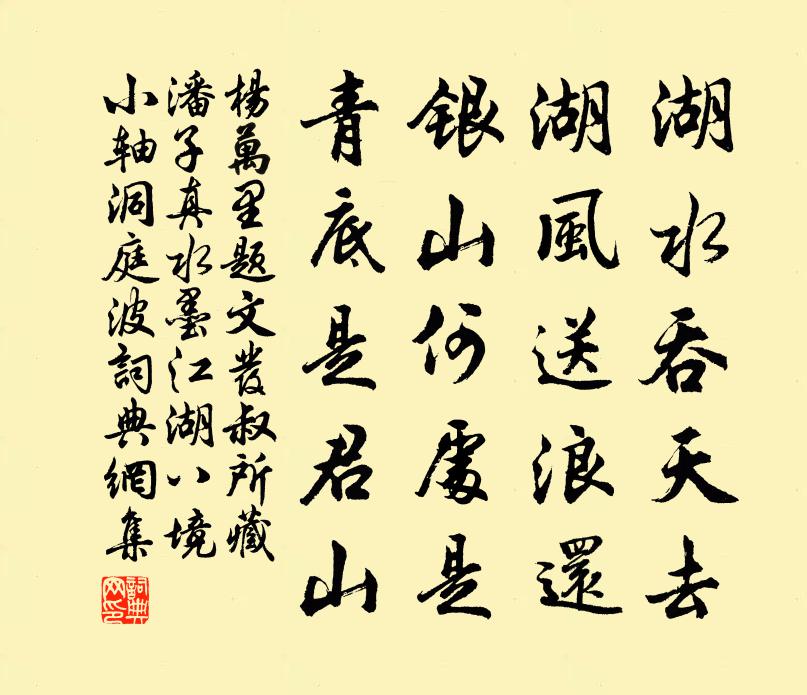 湖水吞天去
湖風送浪還
銀山何處是
青底是君山
楊萬里題文發叔所藏
潘子真水墨江湖八境
小軸洞庭波詞典網集
詞典網印